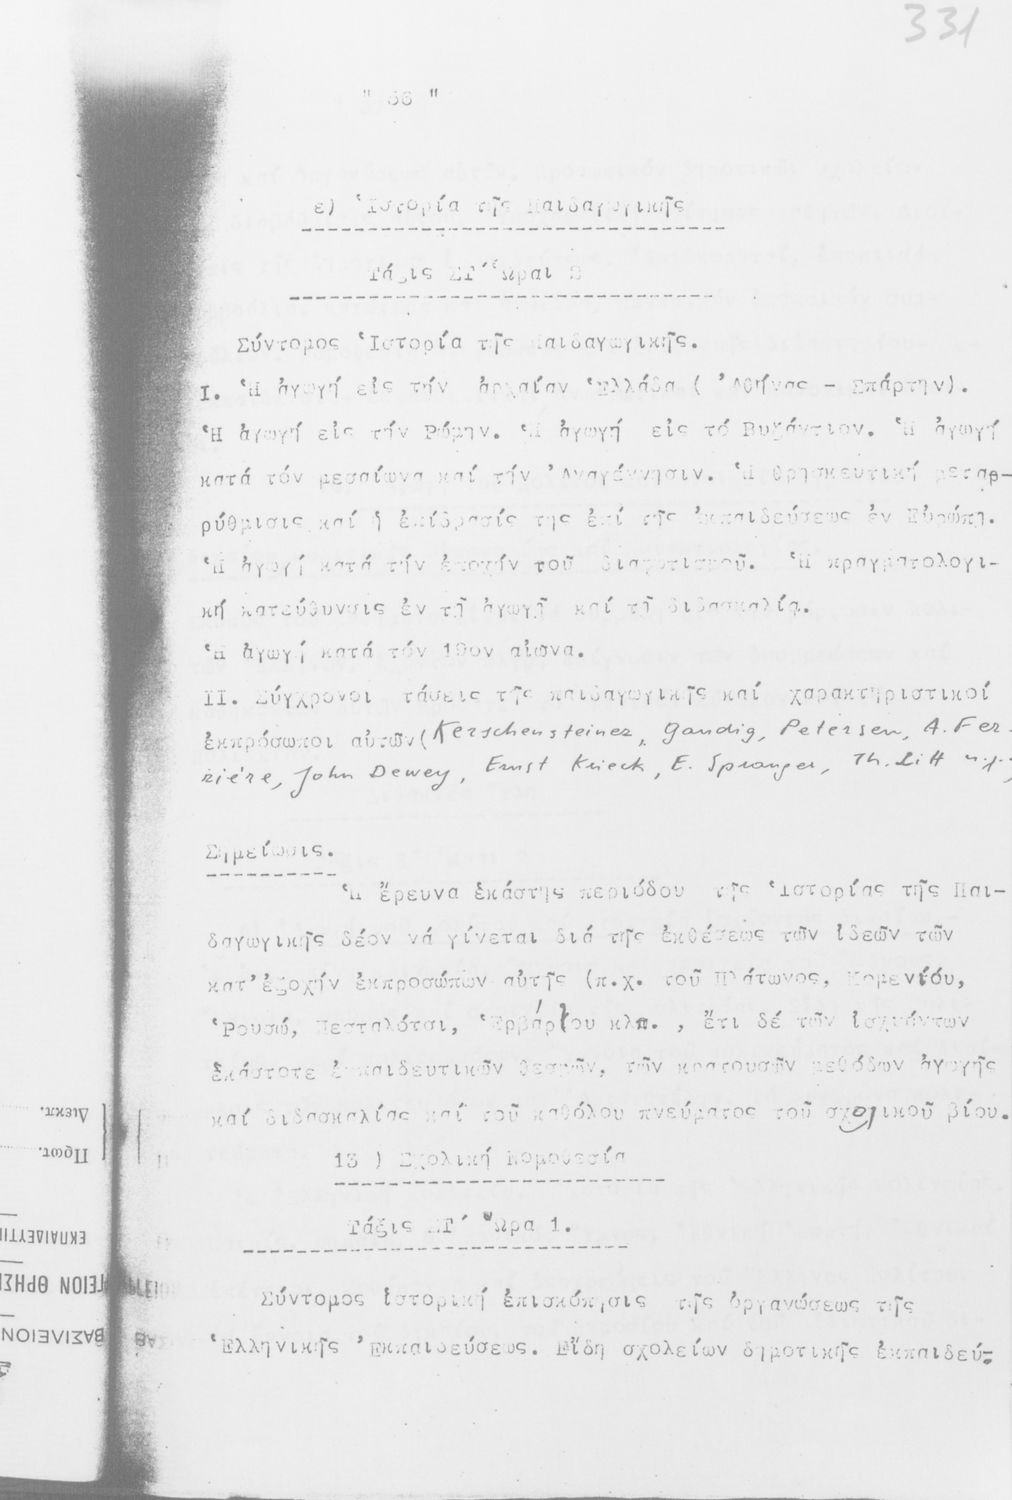 331
" 66 "
ε) Ἱστορία τῆς Παιδαγωγικῆς
Τάξις ΣΤ΄ Ὧραι 2
Σύντομος Ἱστορία τῆς Παιδαγωγικῆς.
I. Ἡ ἀγωγή εἰς τήν ἀρχαίαν Ἑλλάδα ( Ἀθήνας - Σπάρτην).
Ἡ ἀγωγή εἰς τήν Ρώμην. Ἡ ἀγωγή εἰς τό Βυζάντιον. Ἡ ἀγωγή
κατά τόν μεσαίωνα καί τήν Ἀναγέννησιν. Ἡ θρησκευτική μεταρ-
ρύθμισις καί ἡ ἐπίδρασίς της ἐπί τῆς ἐκπαιδεύσεως ἐν Εὐρώπῃ.
Ἡ ἀγωγή κατά τήν ἐποχήν τοῦ διαφωτισμοῦ. Ἡ πραγματολογι-
κή κατεύθυνσις ἐν τῇ ἀγωγῇ καί τῇ διδασκαλίᾳ.
Ἡ ἀγωγή κατά τόν 19ον αἰῶνα.
II. Σύγχρονοι τάσεις τῆς παιδαγωγικῆς καί χαρακτηριστικοί
ἐκπρόσωποι αὐτῶν(Kerschensteiner, Gaudig, Petersen, A. Fer-
rière, John Dewey, Ernst Krieck, E. Spranger, Th. Litt
Σημείωσις.
Ἡ ἔρευνα ἑκάστης περιόδου τῆς Ἱστορίας τῆς Παι-
δαγωγικῆς δέον νά γίνεται διά τῆς ἐκθέσεως τῶν ἰδεῶν τῶν
κατ' ἐξοχήν ἐκπροσώπων αὐτῆς (π.χ. τοῦ Πλάτωνος, Κομενίου,
Ῥουσώ, Πεσταλότσι, Ἑρβάρτου κλπ. , ἔτι δέ τῶν ἰσχυόντων
ἑκάστοτε ἐκπαιδευτικῶν θεσμῶν, τῶν κρατουσῶν μεθόδων ἀγωγῆς
καί διδασκαλίας καί τοῦ καθόλου πνεύματος τοῦ σχολικοῦ βίου.
13 ) Σχολική Νομοθεσία
Τάξις ΣΤ΄ Ὥρα 1.
Σύντομος ἱστορική ἐπισκόπησις τῆς ὀργανώσεως τῆς
Ἑλληνικῆς Ἐκπαιδεύσεως. Εἴδη σχολείων δημοτικῆς ἐκπαιδεύ-
Διεκπ.
Πρωτ.
ΒΑΣΙΛΕΙΟΝ